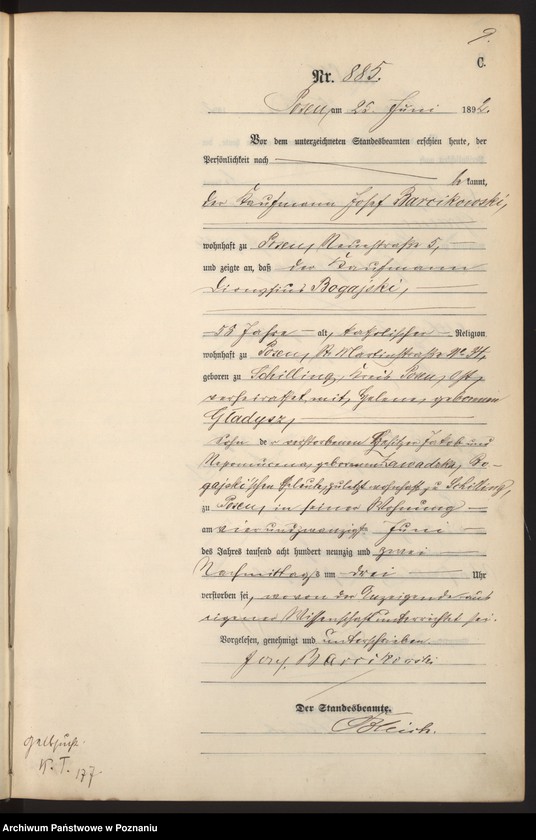 9.
C.
Nr. 885.
Posen, am 25. Juni 1892.
Vor dem unterzeichneten Standesbeamten erschien heute, der
Persönlichkeit nach
be kannt,
der Kaufmann Josef Barcikowski,
wohnhaft zu Posen, Neuestraße 5,
und zeigte an, daß der Kaufmann
Dionysius Bogajski,
Jahre alt, katholischer Religion
wohnhaft zu Posen, St Martinstraße No
geboren zu Schilling, Kreis Posen, Ost,
verheirathet mit Helene, geborenen
Gładysz,
Sohn der verstorbenen Besitzer Jakob und
Nepomucena, geborenen Zawadzka, Bo-
gajski'schen Eheleute, zuletzt wohnhaft zu Schilling,
zu Posen, in seiner Wohnung
am vierundzwanzigsten Juni
des Jahres tausend acht hundert neunzig und zwei
Nachmittags um drei Uhr
verstorben sei, wovon der Anzeigende aus
eigener Wissenschaft unterrichtet sei.
Vorgelesen, genehmigt und unterschrieben
Barcikowski
Der Standesbeamte.
Gelbsucht.
K. T. 177.
Archiwum Państwowe w Poznaniu